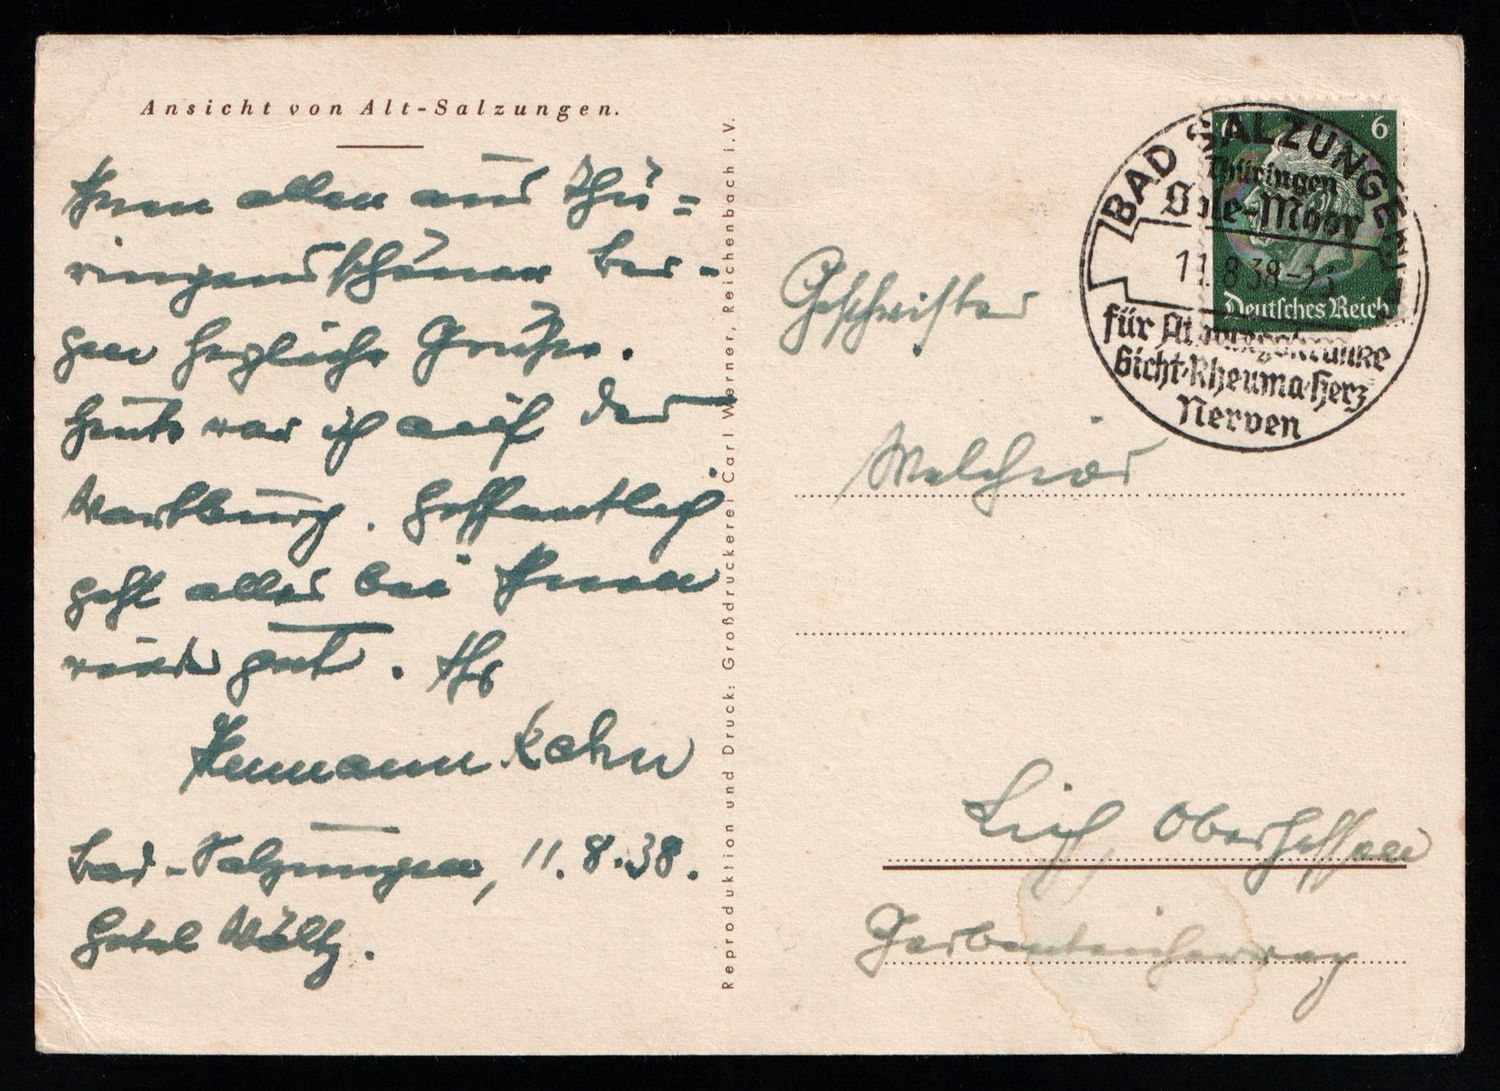 Ansicht von Alt-Salzungen.
Ihnen allen aus Thü=
ringens schönen Ber-
gen herzliche Grüße.
Heute war ich auf der
Wartburg. Hoffentlich
geht alles bei Ihnen
wieder gut. Ihr
Hermann Kahn
Bad-Salzungen, 11.8.38.
Hotel Wältz.
Reproduktion und Druck: Großdruckerei Carl Werner, Reichenbach i.V.
6
Deutsches Reich
BAD SALZUNGEN
Thüringen
Sole-Moor
11.8.38-
für Atmungskranke
Gicht·Rheuma·Herz
Nerven
Geschwister
Melchior
Lich, Oberhessen
Garbenteicherweg